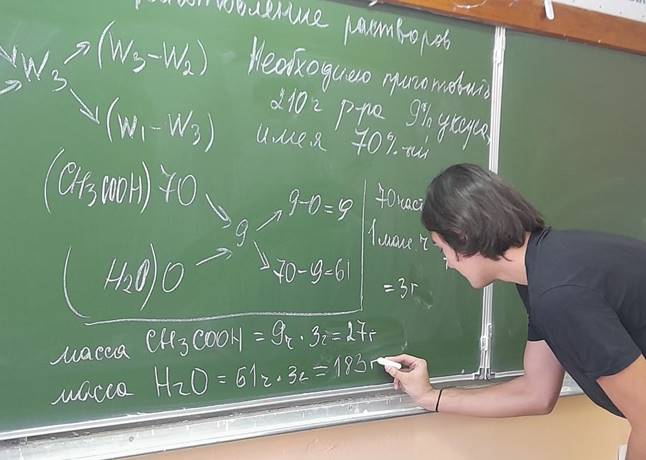 растворов
W₃ (W₃-W₂)
(W₁-W₃)
Необходимо приготовить
210г р-ра 9% уксуса,
имея 70%-ый
(CH₃COOH) 70
9
9-0=9
(H₂O) 0
70-9=61
70 част
1
= 3г
масса CH₃COOH = 9ч · 3г = 27г
масса H₂O = 61ч · 3г = 183г